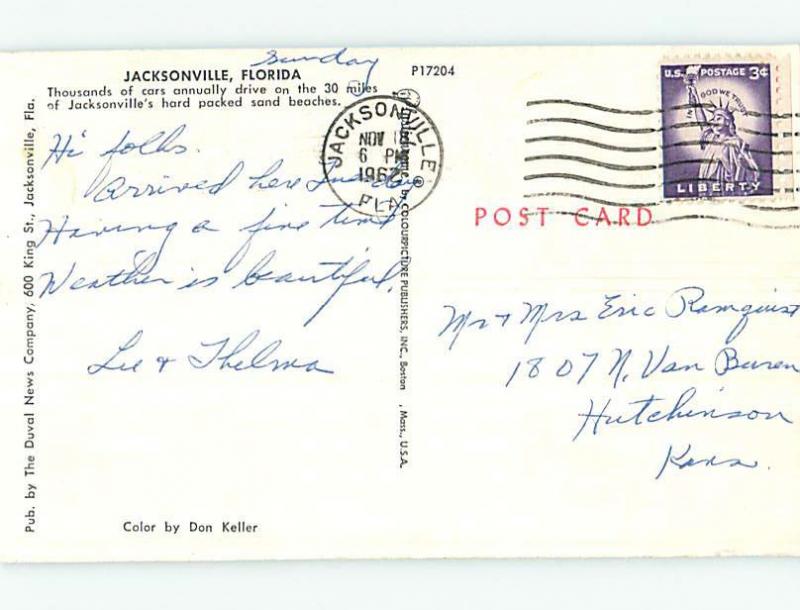 Sunday
JACKSONVILLE, FLORIDA
Thousands of cars annually drive on the 30 miles
of Jacksonville's hard packed sand beaches.
P17204
Hi folks.
Arrived here
Having a fine time
Weather is beautiful.
Lee & Thelma
Color by Don Keller
Pub. by The Duval News Company, 600 King St., Jacksonville, Fla.
by COLOURPICTURE PUBLISHERS, INC., Boston , Mass., U.S.A.
JACKSONVILLE
NOV
6 PM
1962
FLA
U.S. POSTAGE 3¢
IN GOD WE TRUST
LIBERTY
POST CARD
Mr + Mrs Eric Ramquist
1807 N. Van Buren
Hutchinson
Kans.